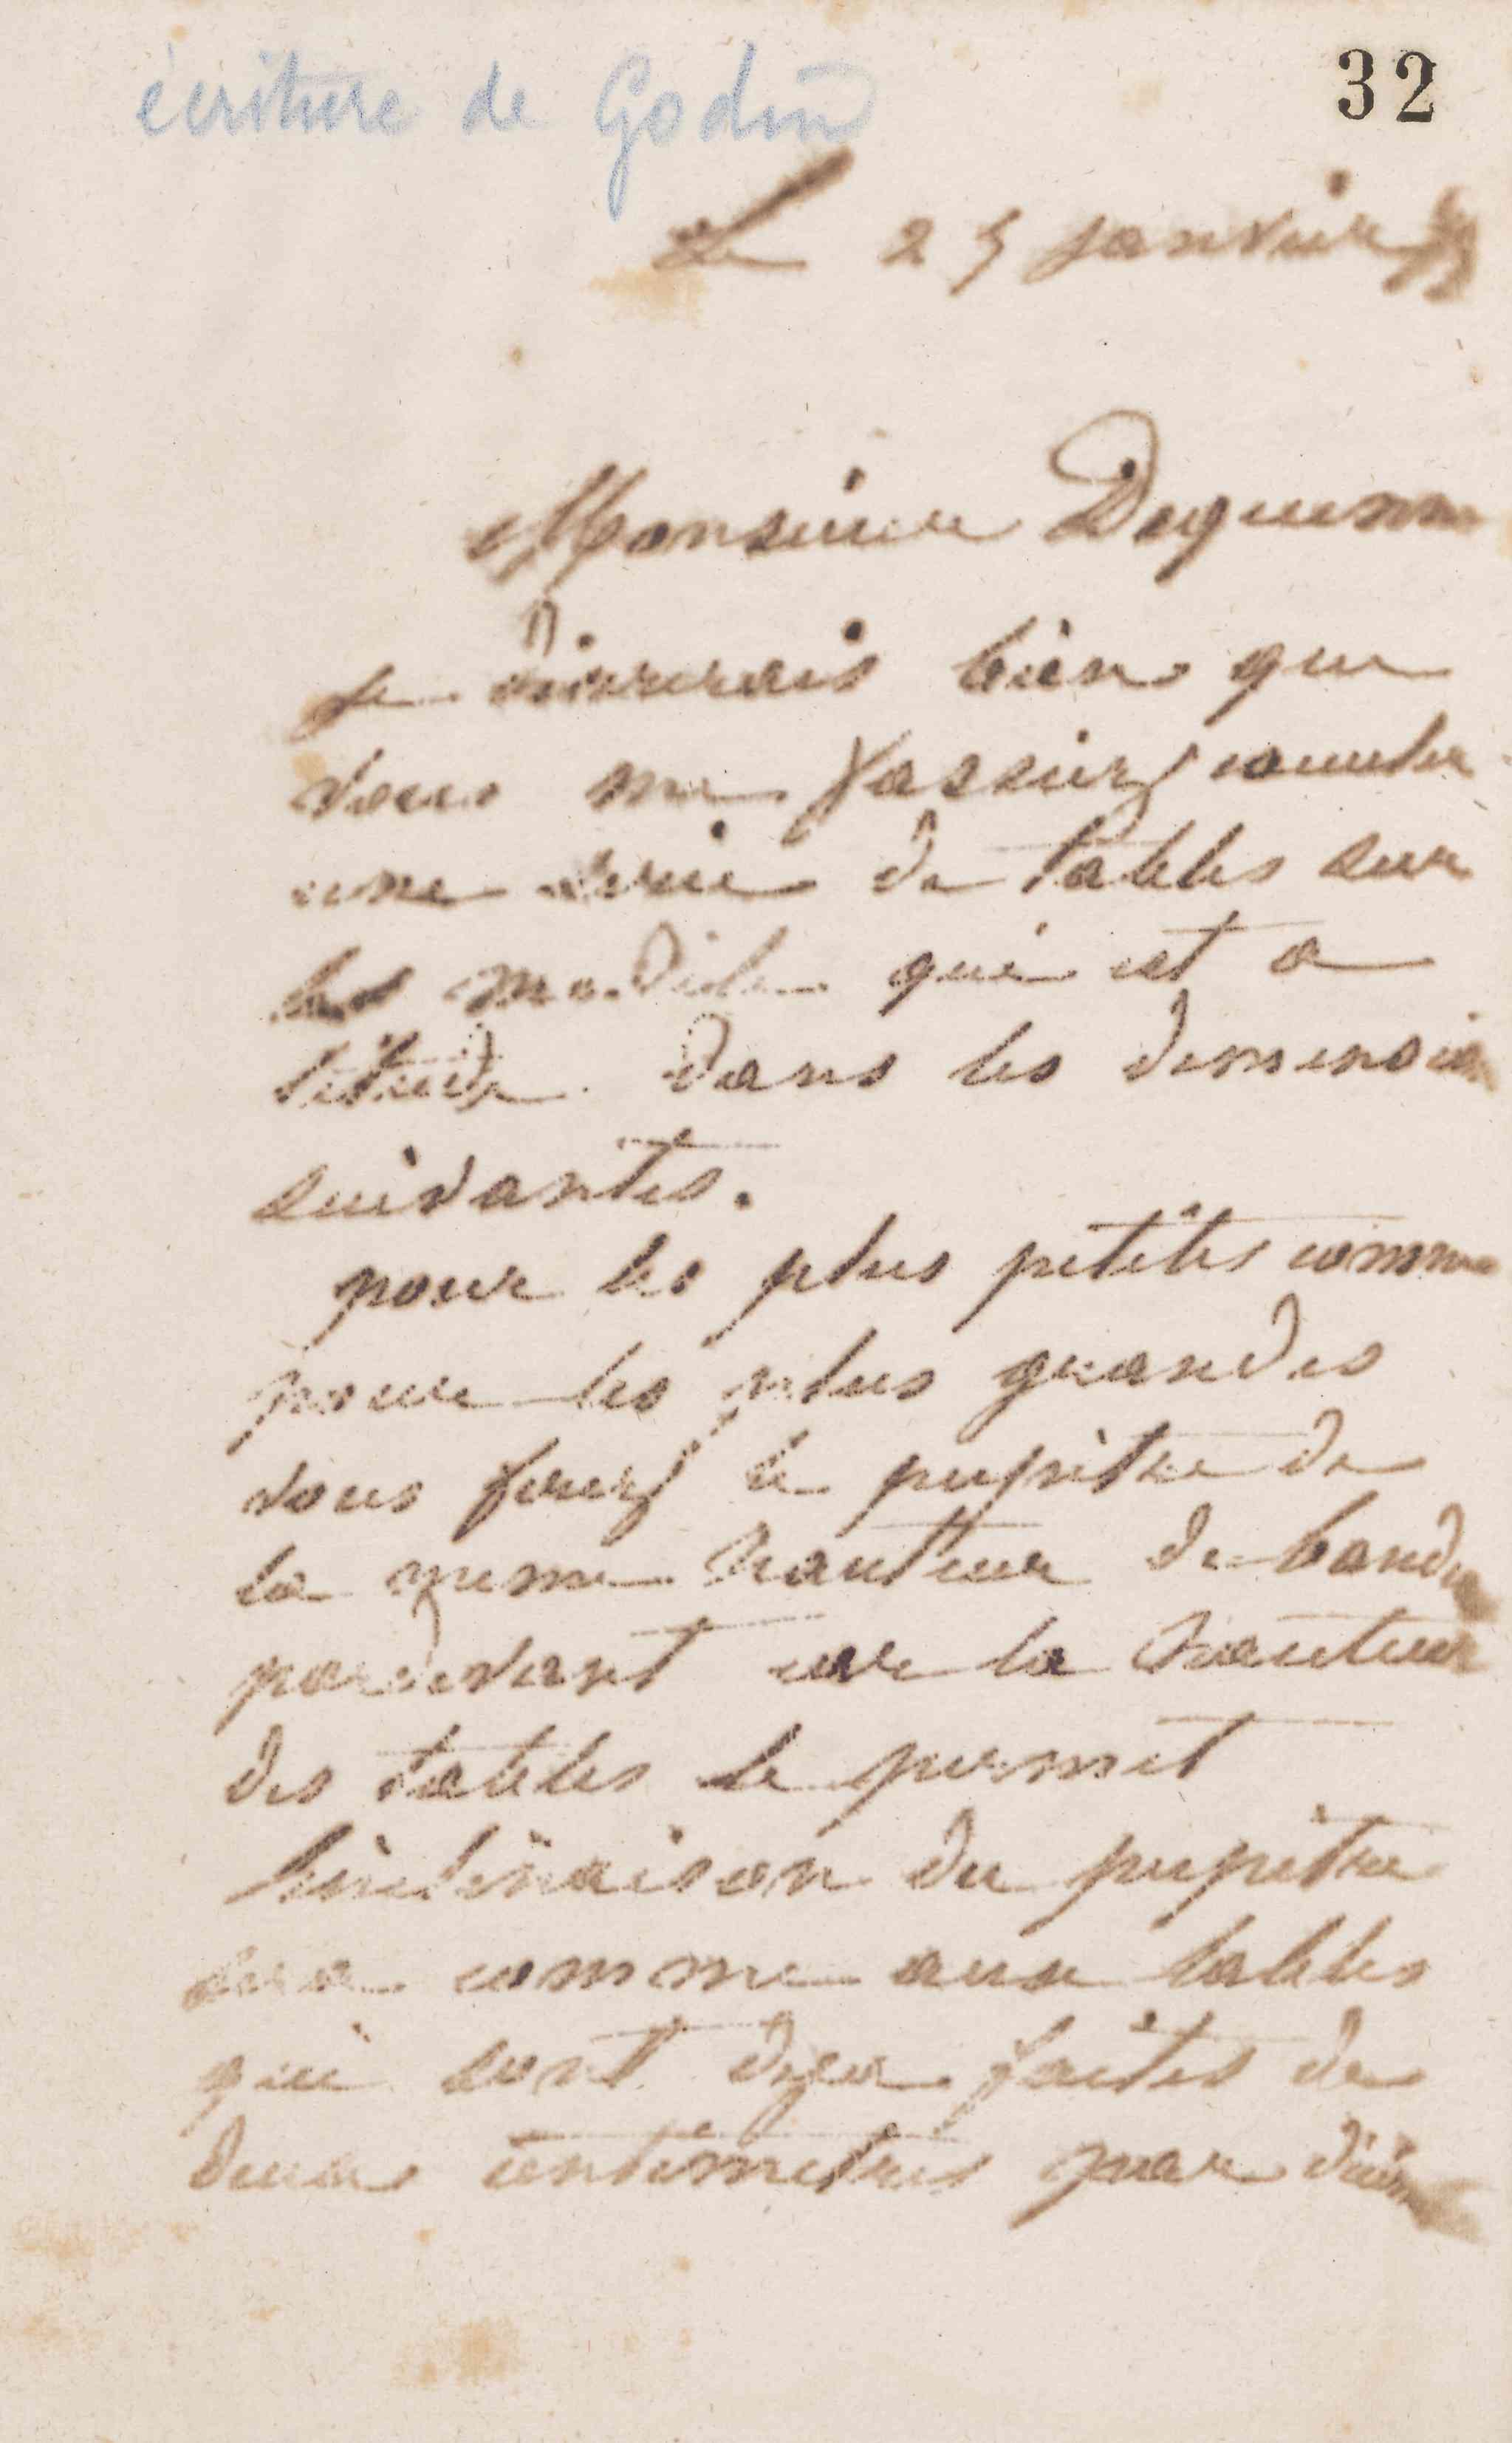 écriture de Godin
32
Le 25 janvier
Monsieur Dequenne
Je désirerais bien que
vous me fassiez couler
une serie de tables sur
les modele qui est a
létude dans les dimension
suivantes.
pour les plus petites comme
pour les plus grandes
vous ferez le pupitre de
la meme hauteur de bande
pardevant car la hauteur
des tables le permet
linclinaison du pupitre
sera comme aux tables
qui sont deja faites de
deux centimetres par